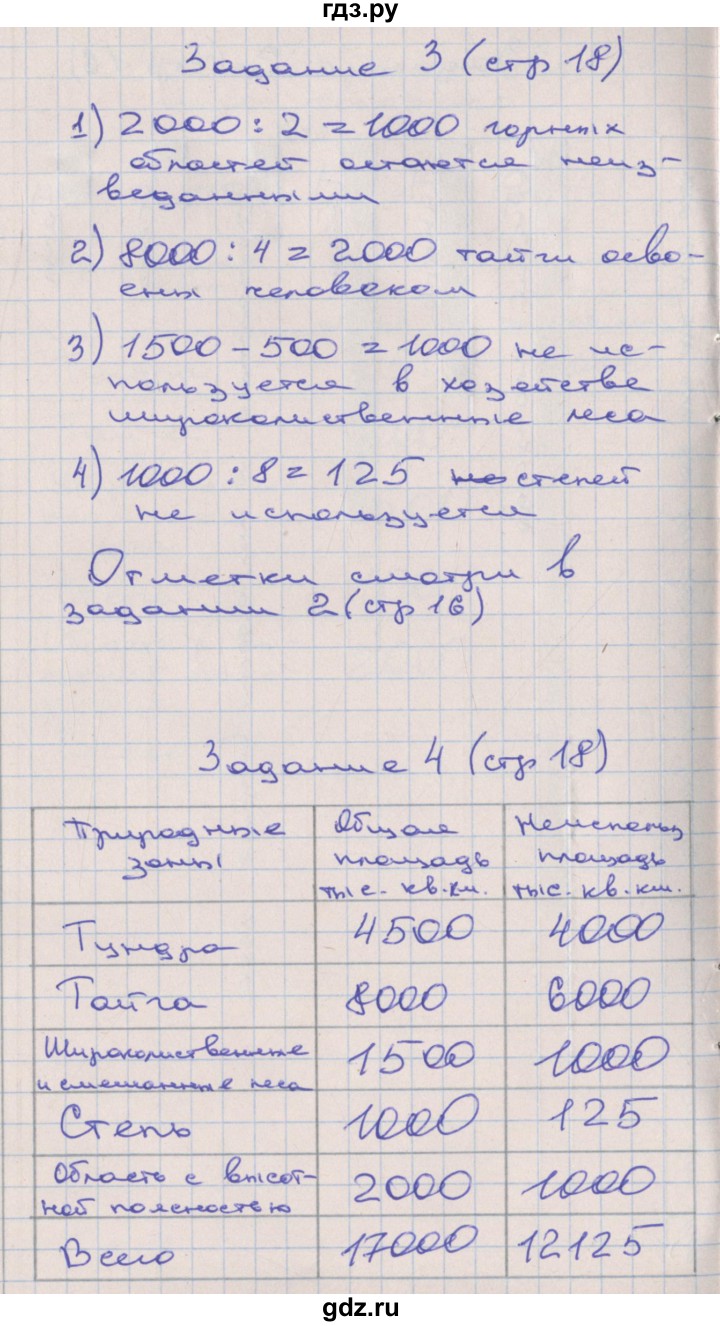 гдз.ру
Задание 3 (стр 18)
1) 2000 : 2 = 1000 горных
областей остаются неиз-
веданными
2) 8000 : 4 = 2000 тайги осво-
ены человеком
3) 1500 - 500 = 1000 не ис-
пользуется в хозяйстве
широколиственные леса
4) 1000 : 8 = 125 степей
не используется
Отметки смотри в
задании 2 (стр 16)
Задание 4 (стр 18)
Природные Общая Неиспольз
зоны площадь площадь
тыс. кв. км. тыс. кв. км.
Тундра 4500 4000
Тайга 8000 6000
Широколиственные
и смешанные леса 1500 1000
Степь 1000 125
Область с высот-
ной поясностью 2000 1000
Всего 17000 12125
gdz.ru